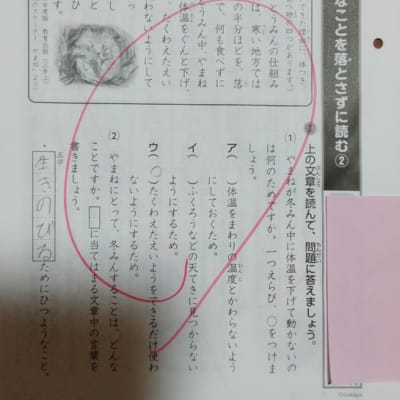 なことを落とさずに読む②
上の文章を読んで、問題に答えましょう。
(1) やまねが冬みん中に体温を下げて動かないの
は何のためですか。一つえらび、○をつけま
しょう。
ア( )体温をまわりの温度とかわらないよう
にしておくため。
イ( )ふくろうなどの天てきに見つからない
ようにするため。
ウ(○)たくわえたえいようをできるだけ使わ
ないようにするため。
(2) やまねにとって、冬みんすることは、どんな
ことですか。□に当てはまる文章中の言葉を
書きましょう。
五字
・生きのびるためにひつようなこと。
とうみんの仕組み
は、寒い地方では
の半分ほどを、落
で、何も食べずに
とうみん中、やまね
体温をぐんと下げ、
、たくわえたえい
わないようにして